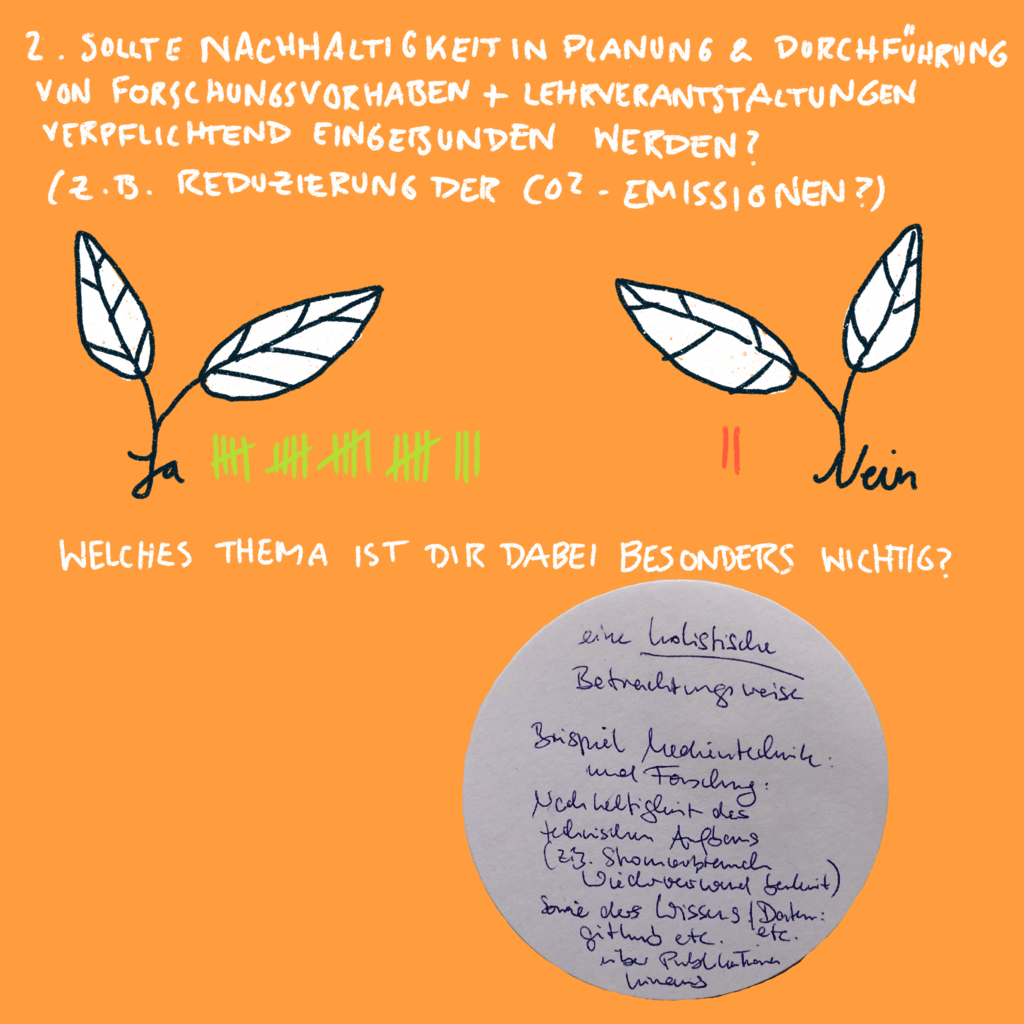 2. SOLLTE NACHHALTIGKEIT IN PLANUNG & DURCHFÜHRUNG
VON FORSCHUNGSVORHABEN + LEHRVERANTSTALTUNGEN
VERPFLICHTEND EINGEBUNDEN WERDEN?
(Z.B. REDUZIERUNG DER CO² - EMISSIONEN?)
Ja
Nein
WELCHES THEMA IST DIR DABEI BESONDERS WICHTIG?
eine holistische
Betrachtungsweise
Beispiel Medientechnik:
und Forschung:
Nachhaltigkeit des
technischen Aufbaus
(z.B. Stromverbrauch
Wiederverwendbarkeit)
Sowie des Wissens / Daten:
github etc. etc.
über Publikationen
hinaus